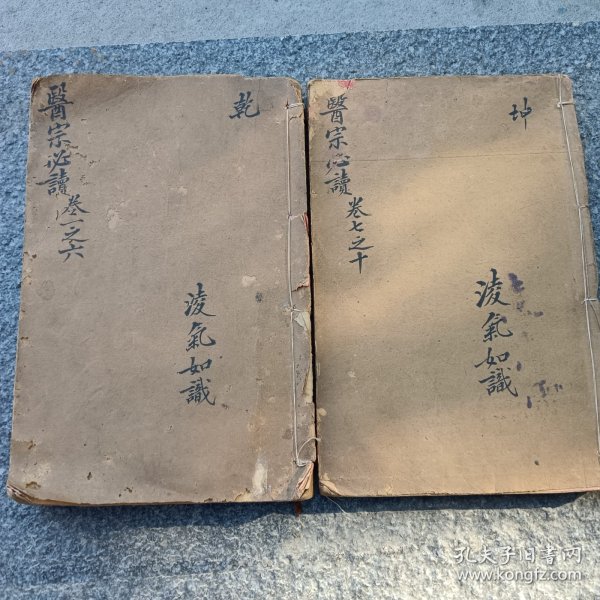 醫宗必讀
卷一之六
乾
淩氣如識
醫宗必讀
卷七之十
坤
淩氣如識
孔夫子旧书网
www.kongfz.com